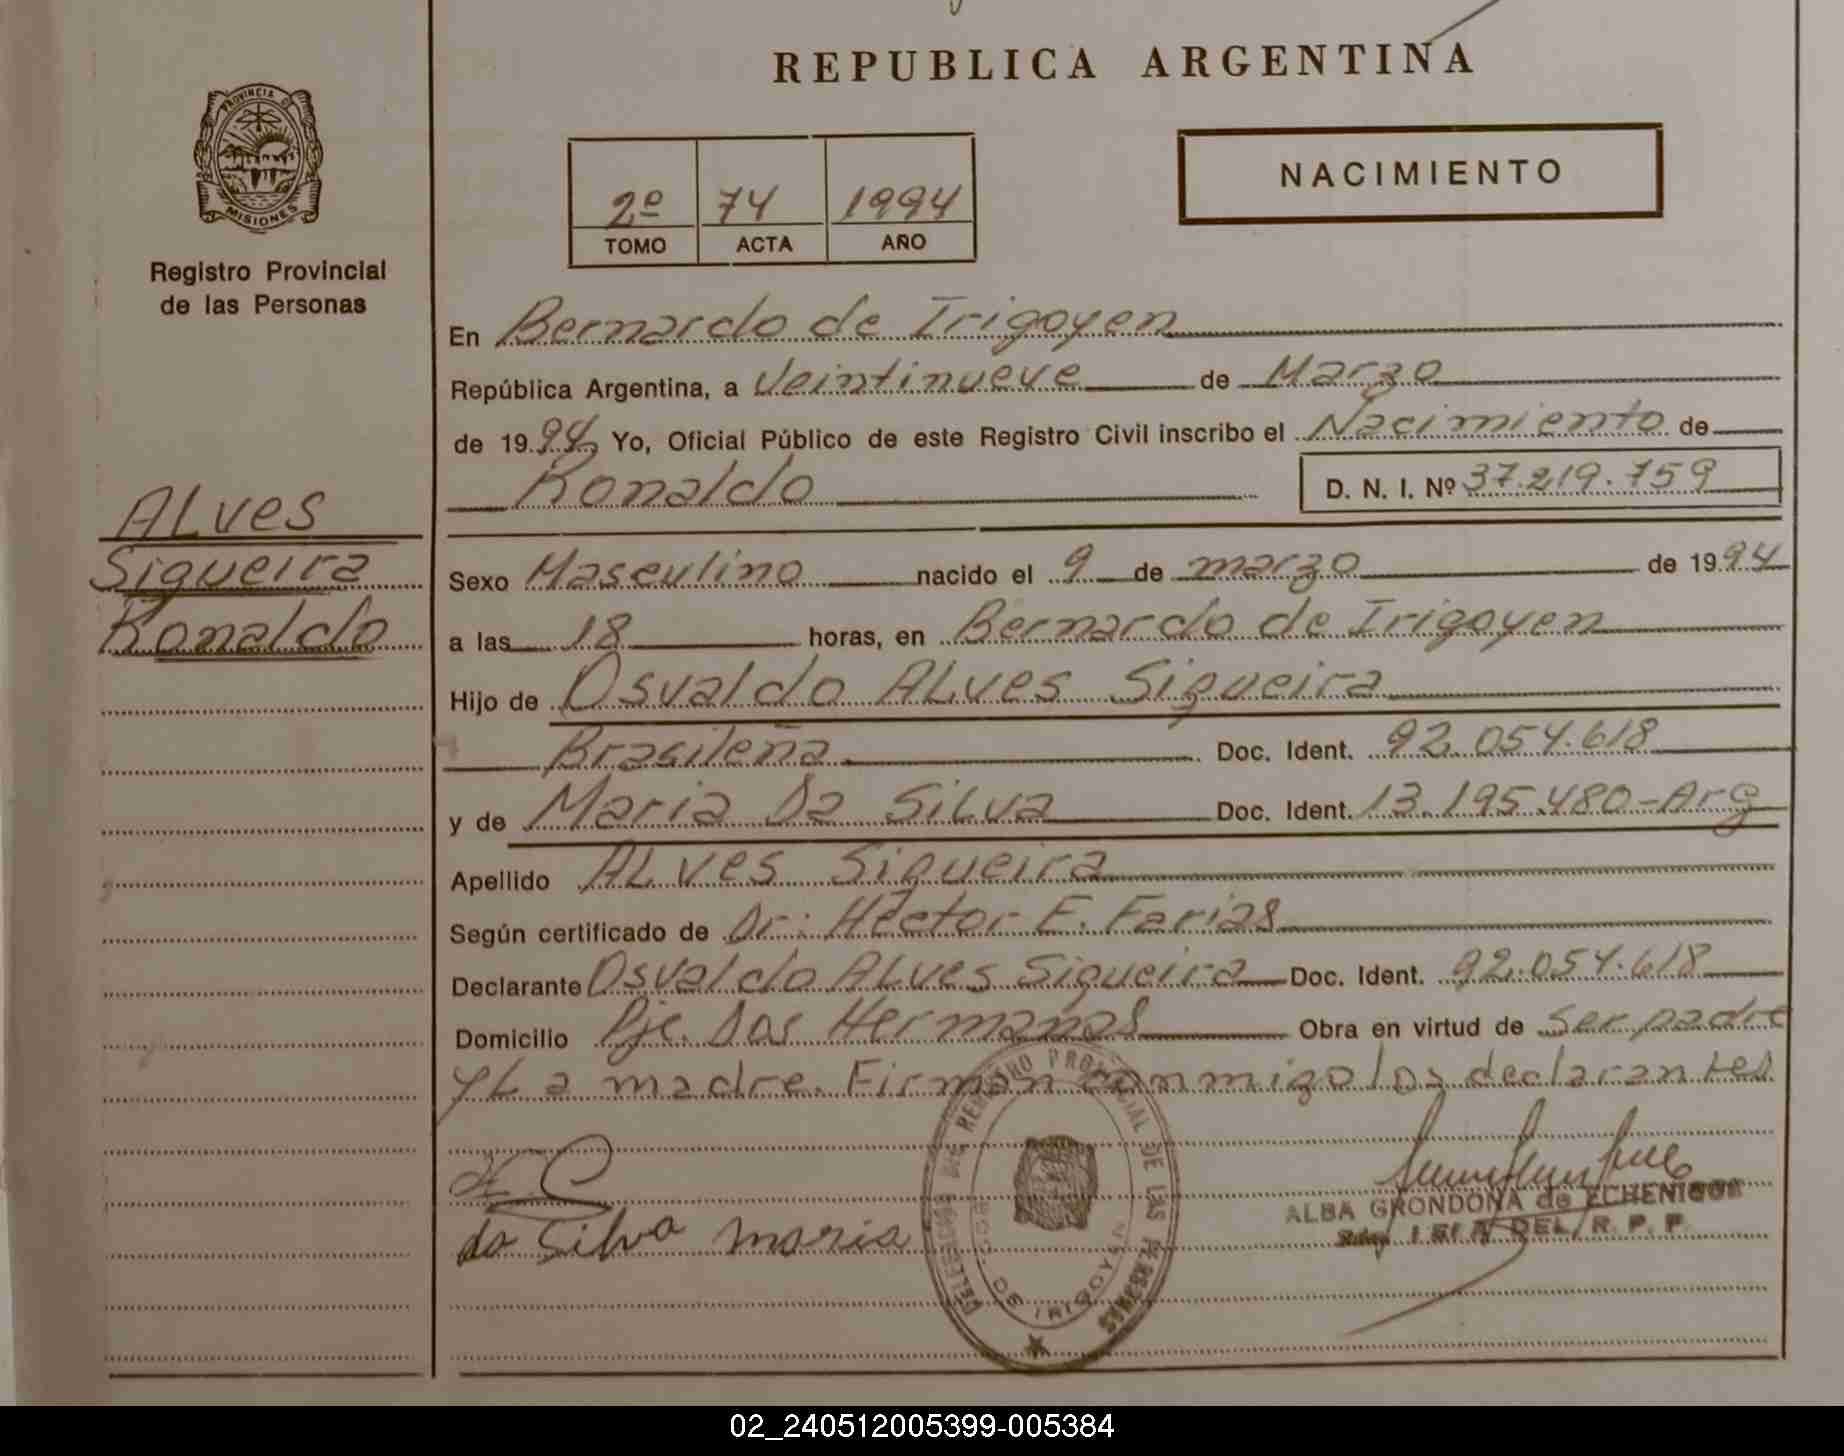 REPUBLICA ARGENTINA
PROVINCIA DE
MISIONES
Registro Provincial
de las Personas
2º 74 1994
TOMO ACTA AÑO
NACIMIENTO
En Bernardo de Irigoyen
República Argentina, a Veintinueve de Marzo
de 1994 Yo, Oficial Público de este Registro Civil inscribo el Nacimiento de
Ronaldo D. N. I. Nº 37.219.759
ALves
Siqueira
Ronaldo
Sexo Masculino nacido el 9 de marzo de 1994
a las 18 horas, en Bernardo de Irigoyen
Hijo de Osvaldo ALves Siqueira
Brasileña Doc. Ident. 92.054.618
y de Maria Da Silva Doc. Ident. 13.195.480-Arg
Apellido ALves Siqueira
Según certificado de Dr: Héctor E. Farias
Declarante Osvaldo ALves Siqueira Doc. Ident. 92.054.618
Domicilio Pje. Dos Hermanas Obra en virtud de ser padre
y La madre. Firman conmigo los declarantes
da Silva maria
REGISTRO PROVINCIAL DE LAS PERSONAS
DE IRIGOYEN
ALBA GRONDONA de ECHENIQUE
DEL R. P. P.
02_240512005399-005384